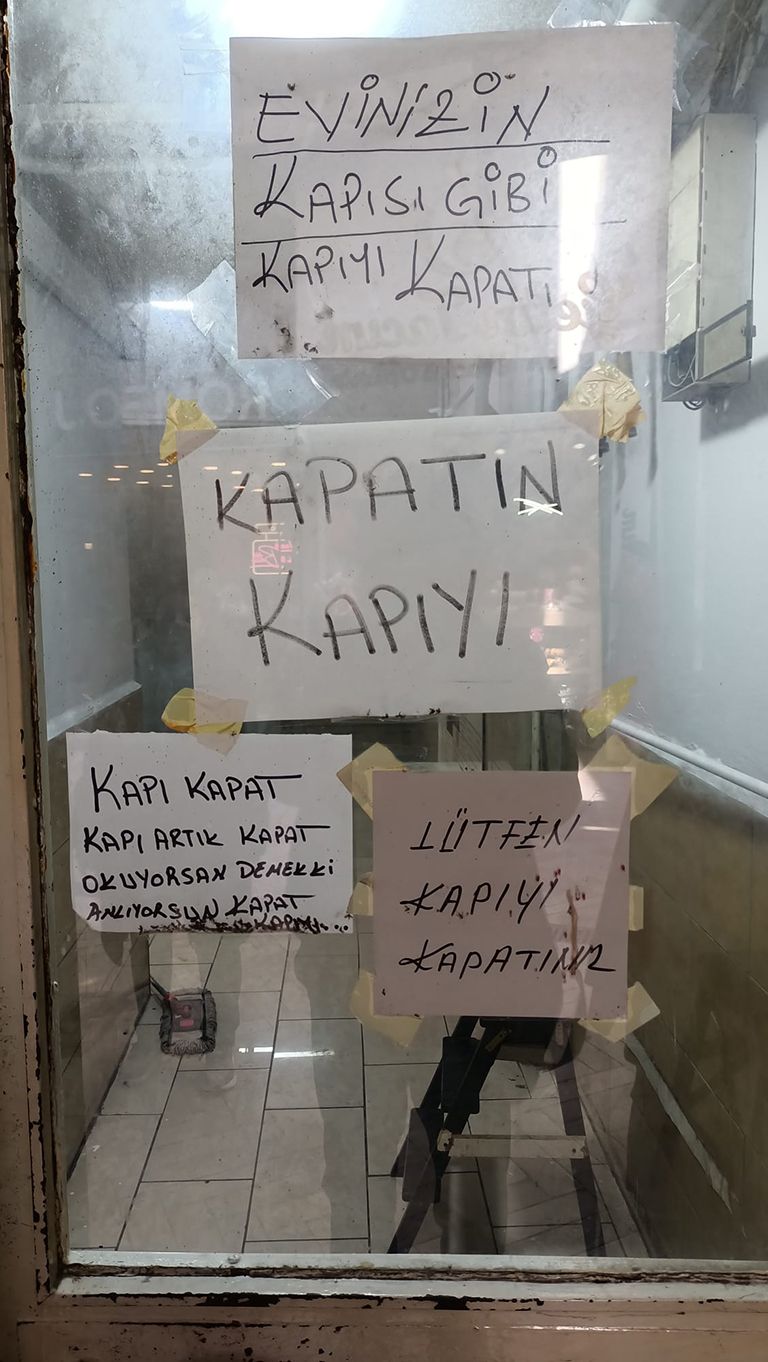 EVİNİZİN
KAPISI GİBİ
KAPIYI KAPATI
KAPATIN
KAPIYI
KAPI KAPAT
KAPI ARTIK KAPAT
OKUYORSAN DEMEKKİ
ANLIYORSUN KAPAT
KAPIYI...
LÜTFEN
KAPIYİ
KAPATINIZ